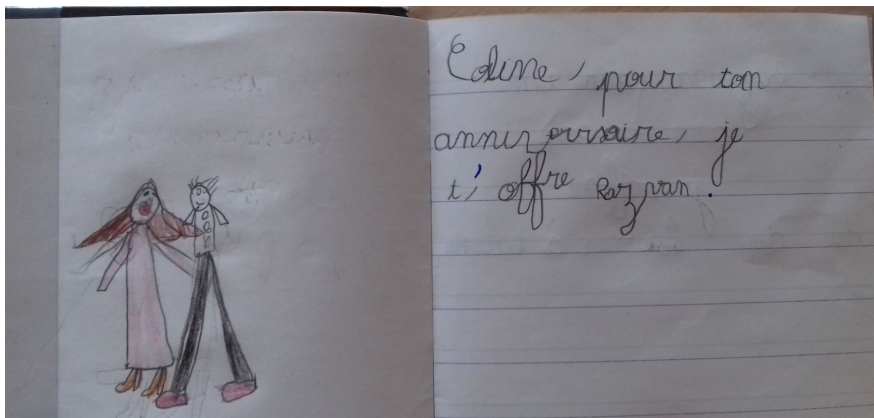 Coline, pour ton
anniversaire, je
t'offre Razvan.